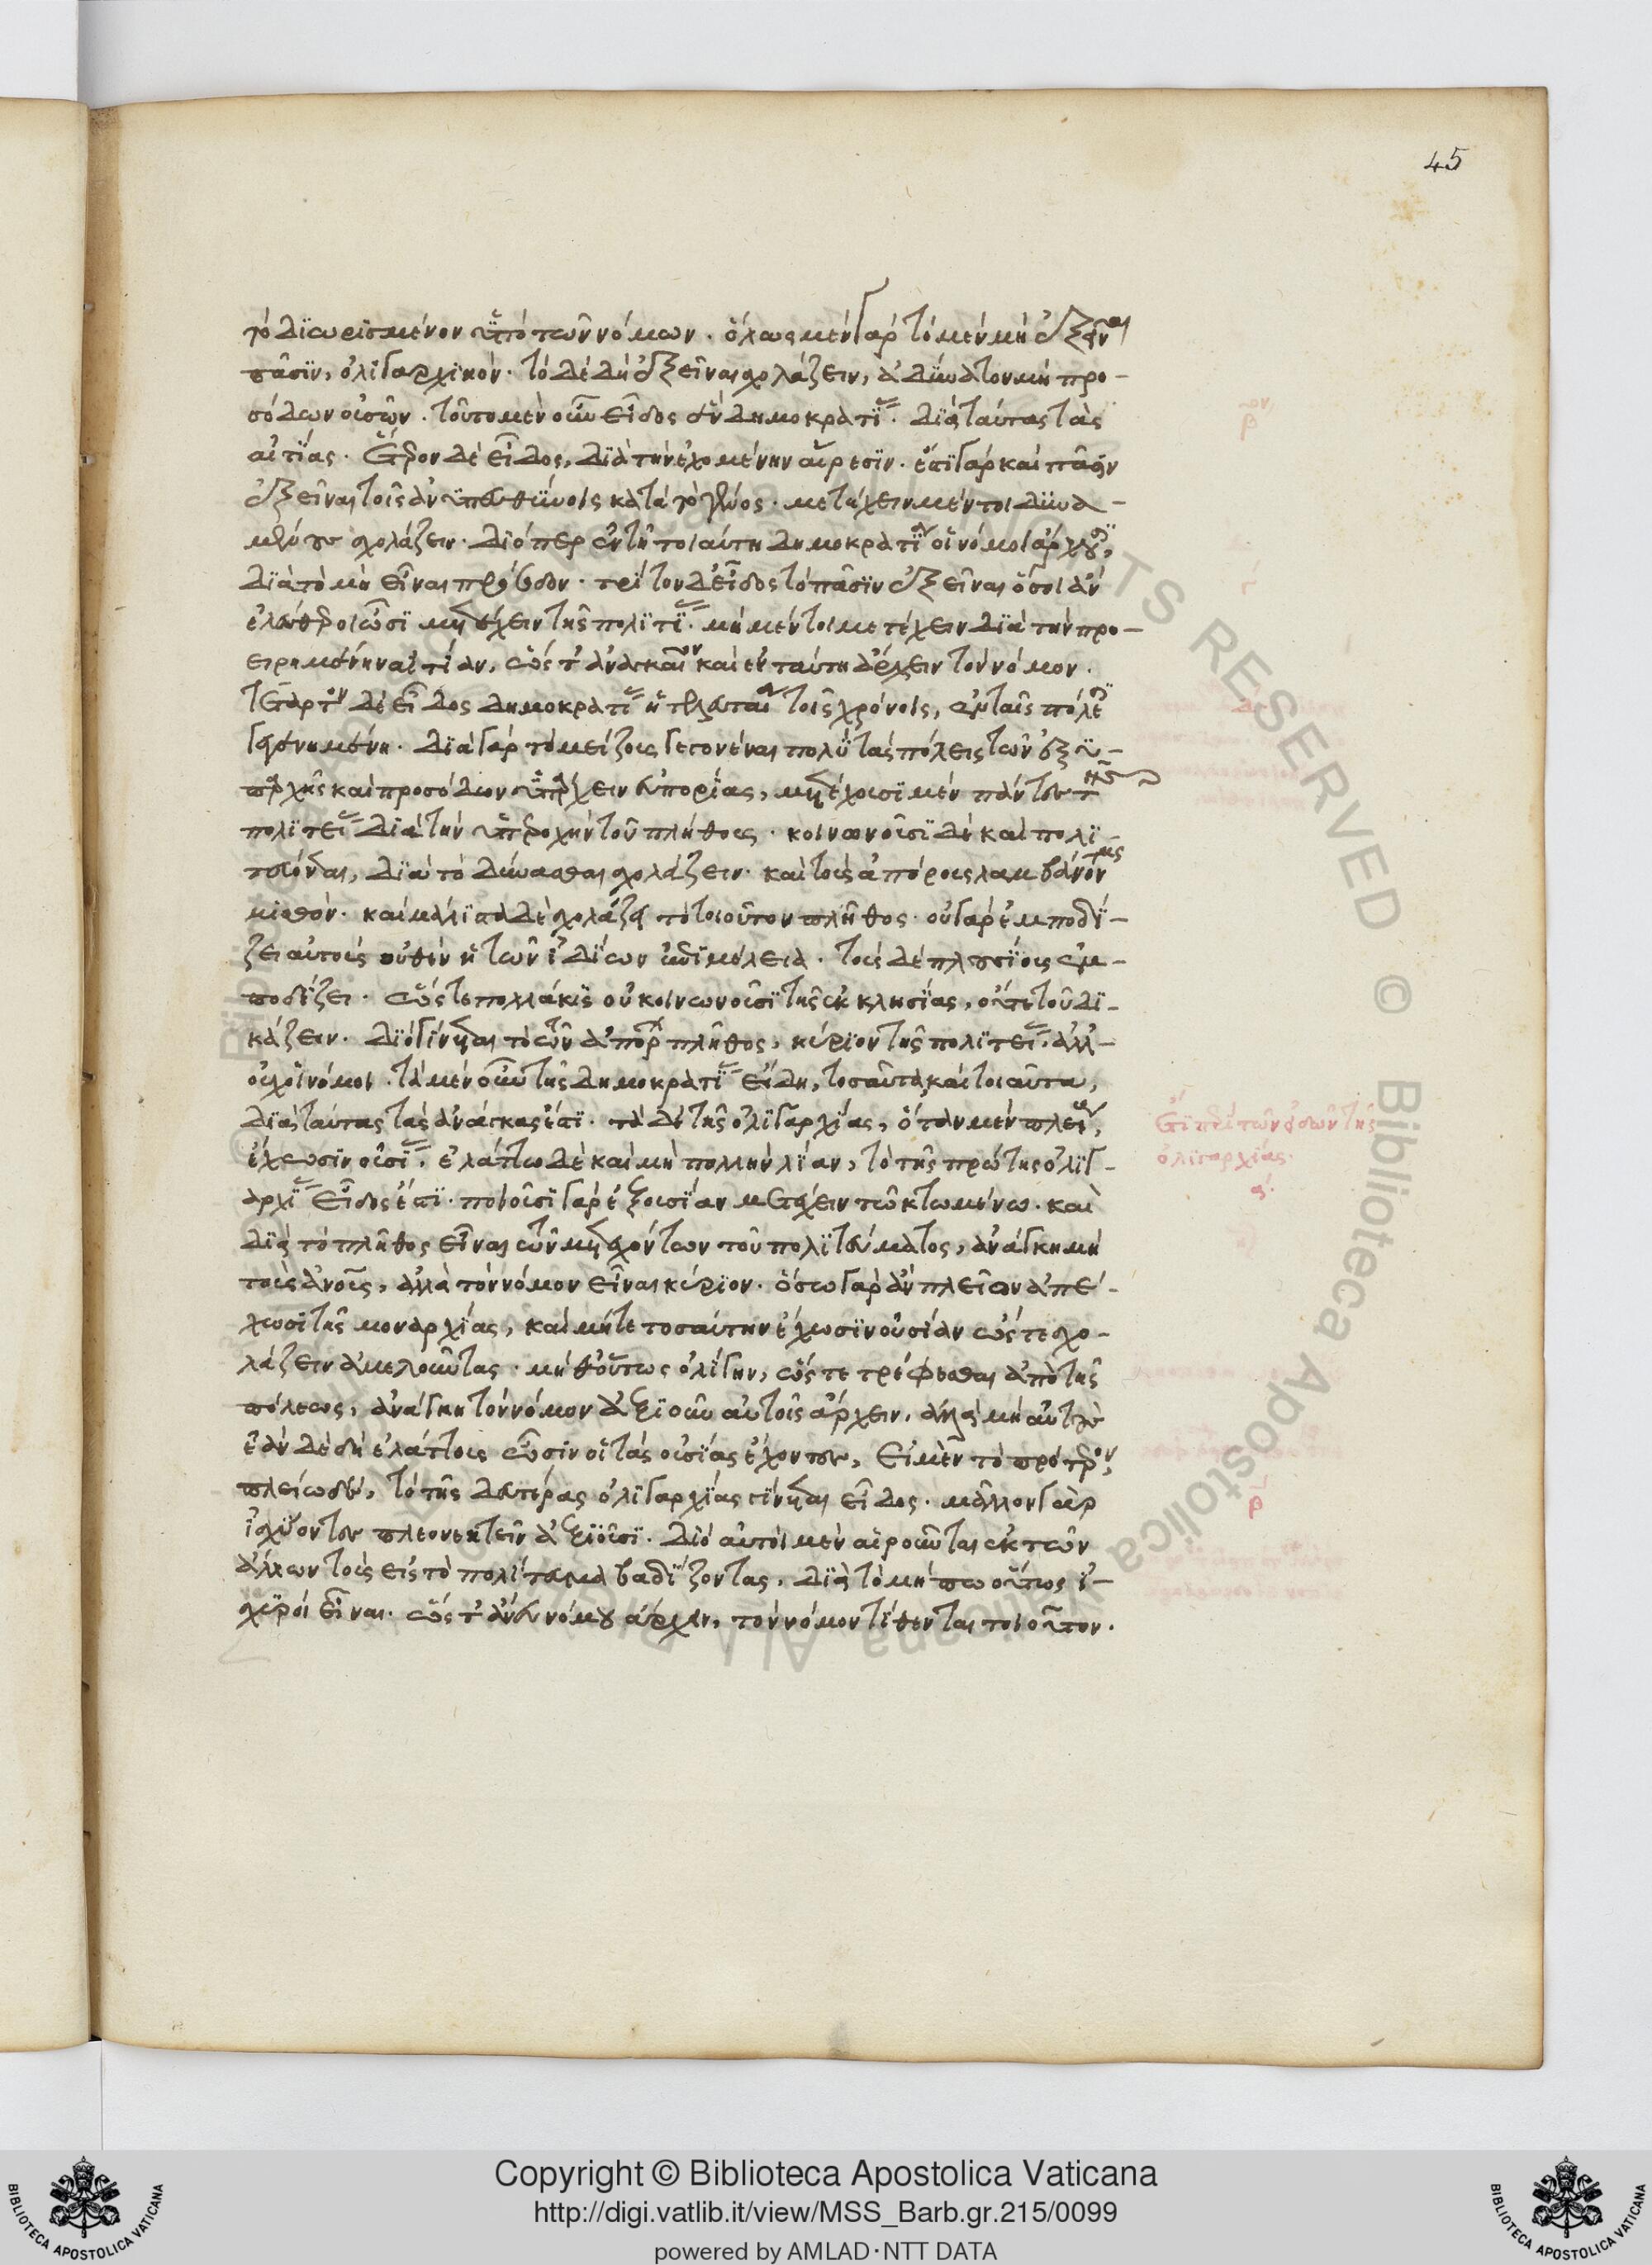 τὸ διωρισμένον ὑπὸ τῶν νόμων. ὅλως μὲν γὰρ τὸ μὲν μὴ ἐξεῖναι
πᾶσιν, ὀλιγαρχικόν. τὸ δὲ δὴ ἐξεῖναι σχολάζειν, ἀδύνατον μὴ προ-
σόδων οὐσῶν. τοῦτο μὲν οὖν εἶδος ἓν δημοκρατίας. διὰ ταύτας τὰς
αἰτίας. ἕτερον δὲ εἶδος, διὰ τὴν ἐχομένην αἵρεσιν. ἔστι γὰρ καὶ πᾶσιν
ἐξεῖναι τοῖς ἀνυπευθύνοις κατὰ τὸ γένος. μετέχειν μέντοι δυνα-
μένους σχολάζειν. διόπερ ἐν τῇ τοιαύτῃ δημοκρατίᾳ οἱ νόμοι ἄρχουσι,
διὰ τὸ μὴ εἶναι πρόσοδον. τρίτον δ' εἶδος τὸ πᾶσιν ἐξεῖναι ὅσοι ἂν
ἐλεύθεροι ὦσι μετέχειν τῆς πολιτείας. μὴ μέντοι μετέχειν διὰ τὴν προ-
ειρημένην αἰτίαν, ὥστ' ἀναγκαῖον καὶ ἐν ταύτῃ ἄρχειν τὸν νόμον.
τέταρτον δὲ εἶδος δημοκρατίας ἡ τελευταία τοῖς χρόνοις, ἐν ταῖς πόλεσι
γεγενημένη. διὰ γὰρ τὸ μείζους γεγονέναι πολὺ τὰς πόλεις τῶν ἐξ ὑ-
παρχῆς καὶ προσόδων ὑπάρχειν εὐπορίας, μετέχουσι μὲν πάντες τῆς
πολιτείας διὰ τὴν ὑπεροχὴν τοῦ πλήθους. κοινωνοῦσι δὲ καὶ πολι-
τεύονται, διὰ τὸ δύνασθαι σχολάζειν. καὶ τοὺς ἀπόρους λαμβάνοντας
μισθόν. καὶ μάλιστα δὲ σχολάζει τὸ τοιοῦτον πλῆθος. οὐ γὰρ ἐμποδί-
ζει αὐτοὺς οὐθὲν ἡ τῶν ἰδίων ἐπιμέλεια. τοὺς δὲ πλουσίους ἐμ-
ποδίζει. ὥστε πολλάκις οὐ κοινωνοῦσι τῆς ἐκκλησίας, οὔτε τοῦ δι-
κάζειν. διὸ γίνεται τὸ τῶν ἀπόρων πλῆθος, κύριον τῆς πολιτείας. ἀλλ-
οὐχ οἱ νόμοι. τὰ μὲν οὖν τῆς δημοκρατίας εἴδη, τοσαῦτα καὶ τοιαῦτα,
διὰ ταύτας τὰς ἀνάγκας ἐστί. τὰ δὲ τῆς ὀλιγαρχίας, ὅταν μὲν πλείους
ἔχωσιν οὐσίαν, ἐλάττω δὲ καὶ μὴ πολλὴν λίαν, τὸ τῆς πρώτης ὀλιγ-
αρχίας εἶδος ἐστί. ποιοῦσι γὰρ ἐξουσίαν μετέχειν τῷ κτωμένῳ. καὶ
διὰ τὸ πλῆθος εἶναι τῶν μετεχόντων τοῦ πολιτεύματος, ἀνάγκη μὴ
τοὺς ἀνοὺς, ἀλλὰ τὸν νόμον εἶναι κύριον. ὅσω γὰρ ἂν πλεῖον ἀπέ-
χωσι τῆς μοναρχίας, καὶ μήτε τοσαύτην ἔχωσιν οὐσίαν ὥστε σχο-
λάζειν ἀμελοῦντας. μήθ' οὕτως ὀλίγην, ὥστε τρέφεσθαι ἀπὸ τῆς
πόλεως, ἀνάγκη τὸν νόμον ἀξιοῦν αὐτοῖς ἄρχειν, ἀλλὰ μὴ αὐτούς
ἐὰν δὲ δὴ ἐλάττους ὦσιν οἱ τὰς οὐσίας ἔχοντες, εἰ μὲν τὸ πρότερον,
πλείους δὲ, τὸ τῆς δευτέρας ὀλιγαρχίας γίνεται εἶδος. μᾶλλον γὰρ
ἰσχύοντες πλεονεκτεῖν ἀξιοῦσι. διὸ αὐτοὶ μὲν αἱροῦνται ἐκ τῶν
ἄλλων τοὺς εἰς τὸ πολίτευμα βαδίζοντας, διὰ τὸ μήπω οὕτως ἰ-
σχυροὶ εἶναι. ὥστ' ἄνευ νόμου ἄρχειν, τὸν νόμον τίθενται τοιοῦτον.
45
ὅτι περὶ τῶν εἰδῶν τῆς
ὀλιγαρχίας.
α΄.
β
Copyright © Biblioteca Apostolica Vaticana
http://digi.vatlib.it/view/MSS_Barb.gr.215/0099
powered by AMLAD·NTT DATA
BIBLIOTECA APOSTOLICA VATICANA
BIBLIOTECA APOSTOLICA VATICANA